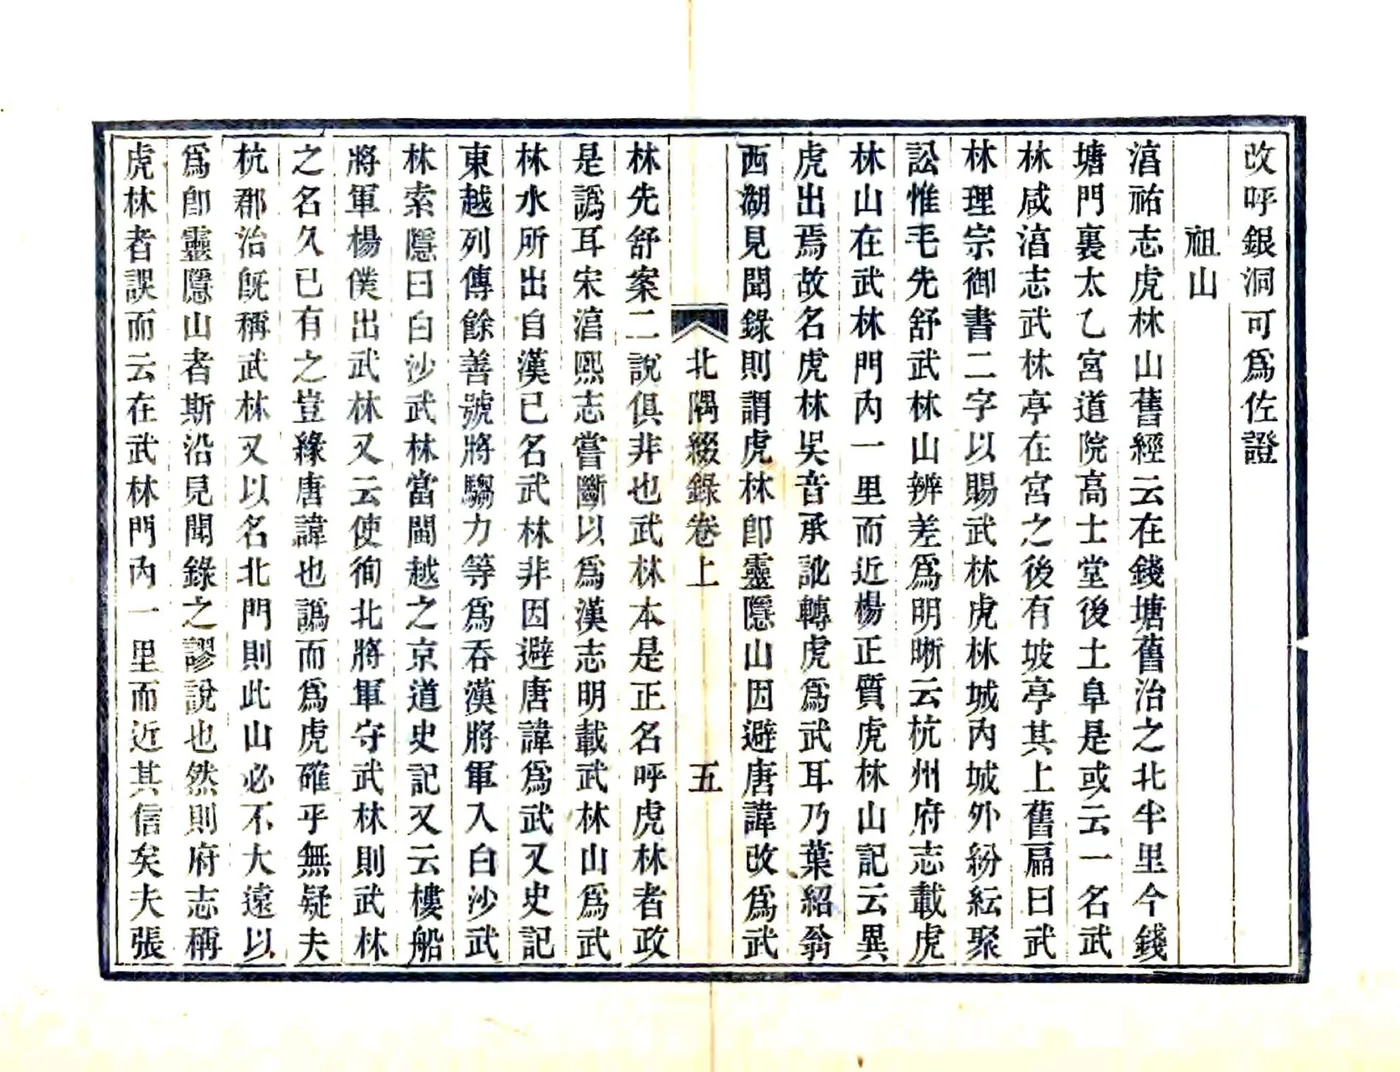 改呼銀洞可爲佐證
祖山
湻祐志虎林山舊經云在錢塘舊治之北半里今錢
塘門裏太乙宮道院高士堂後土阜是或云一名武
林咸湻志武林亭在宮之後有坡亭其上舊扁曰武
林理宗御書二字以賜武林虎林城內城外紛紜聚
訟惟毛先舒武林山辨差爲明晰云杭州府志載虎
林山在武林門內一里而近楊正質虎林山記云異
虎出焉故名虎林吳音承訛轉虎爲武耳乃葉紹翁
西湖見聞錄則謂虎林卽靈隱山因避唐諱改爲武
北隅綴錄卷上
五
林先舒案二說俱非也武林本是正名呼虎林者政
是譌耳宋湻熙志嘗斷以爲漢志明載武林山爲武
林水所出自漢已名武林非因避唐諱爲武又史記
東越列傳餘善號將騶力等爲吞漢將軍入白沙武
林索隱曰白沙武林當閩越之京道史記又云樓船
將軍楊僕出武林又云使徇北將軍守武林則武林
之名久已有之豈緣唐諱也譌而爲虎確乎無疑夫
杭郡治旣稱武林又以名北門則此山必不大遠以
爲卽靈隱山者斯沿見聞錄之謬說也然則府志稱
虎林者誤而云在武林門內一里而近其信矣夫張